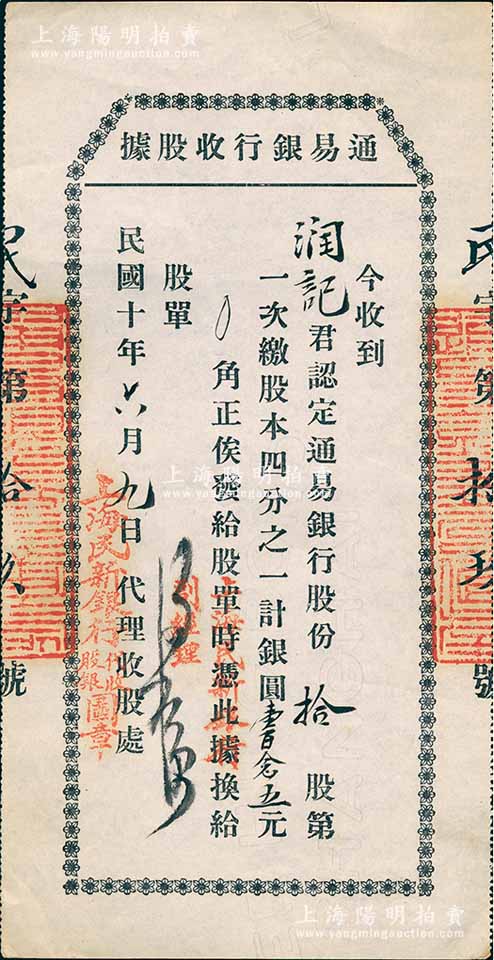 上海陽明拍賣
www.yangmingauction.com
上海陽明拍賣
www.yangmingauction.com
通易銀行收股據
今收到
潤記君認定通易銀行股份拾股第
一次繳股本四分之一計銀圓壹百念五元
角正俟發給股單時憑此據換給
股單
民國十年六月九日代理收股處
上海民新銀行代收股銀圖章
上海民新銀行
副經理
民字第拾玖號
字第拾玖號
上海陽明拍賣
www.yangmingauction.com
上海陽明拍賣
www.yangmingauction.com